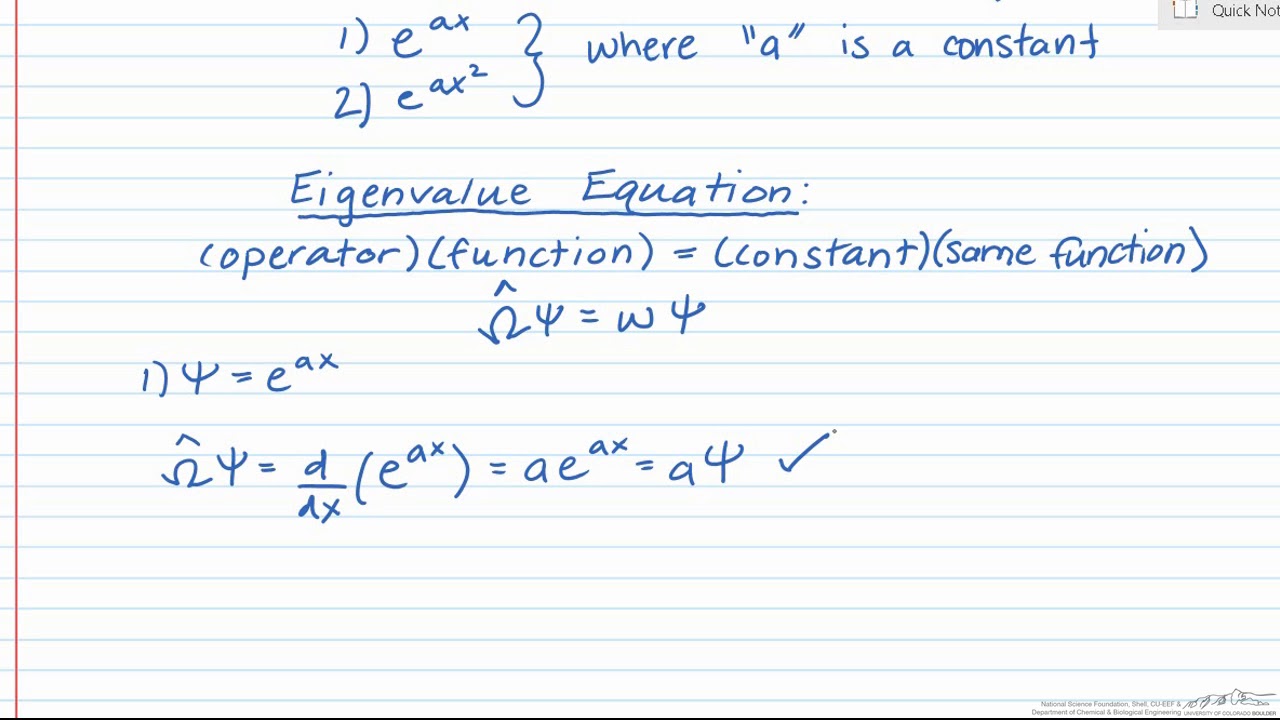 Quick Not
1) e^{ax} } where "a" is a constant
2) e^{ax^2}
Eigenvalue Equation:
(operator)(function) = (constant)(same function)
Ω̂Ψ = ωΨ
1) Ψ = e^{ax}
Ω̂Ψ = d/dx (e^{ax}) = ae^{ax} = aΨ ✓
National Science Foundation, Shell, CU-EEF &
Department of Chemical & Biological Engineering UNIVERSITY OF COLORADO BOULDER